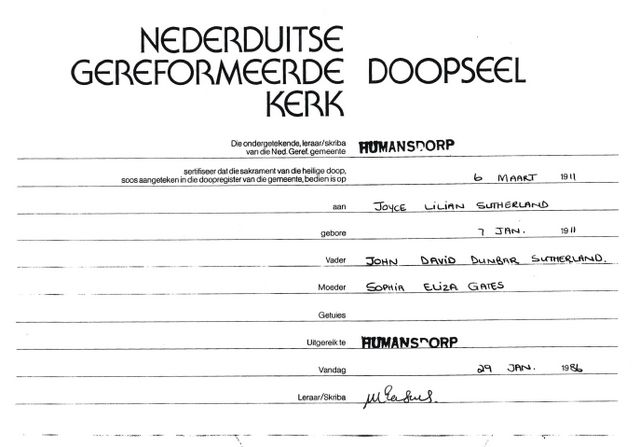 NEDERDUITSE
GEREFORMEERDE DOOPSEEL
KERK
Die ondergetekende, leraar/skriba
van die Ned. Geref. gemeente HUMANSDORP
sertifiseer dat die sakrament van die heilige doop,
soos aangeteken in die doopregister van die gemeente, bedien is op 6 MAART 1911
aan JOYCE LILIAN SUTHERLAND
gebore 7 JAN. 1911
Vader JOHN DAVID DUNBAR SUTHERLAND.
Moeder SOPHIA ELIZA GATES
Getuies
Uitgereik te HUMANSDORP
Vandag 29 JAN. 1986
Leraar/Skriba